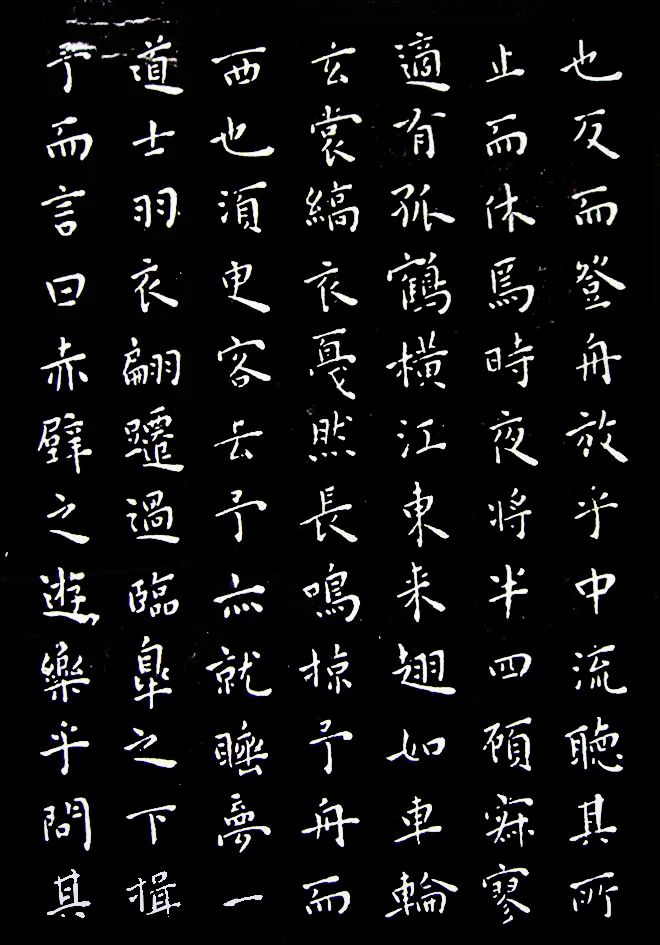 也反而登舟放乎中流聽其所
止而休焉時夜將半四顧寂寥
適有孤鶴橫江東来翅如車輪
玄裳縞衣戛然長鳴掠予舟而
西也須臾客去予亦就睡夢一
道士羽衣翩躚過臨皋之下揖
予而言曰赤壁之遊樂乎問其